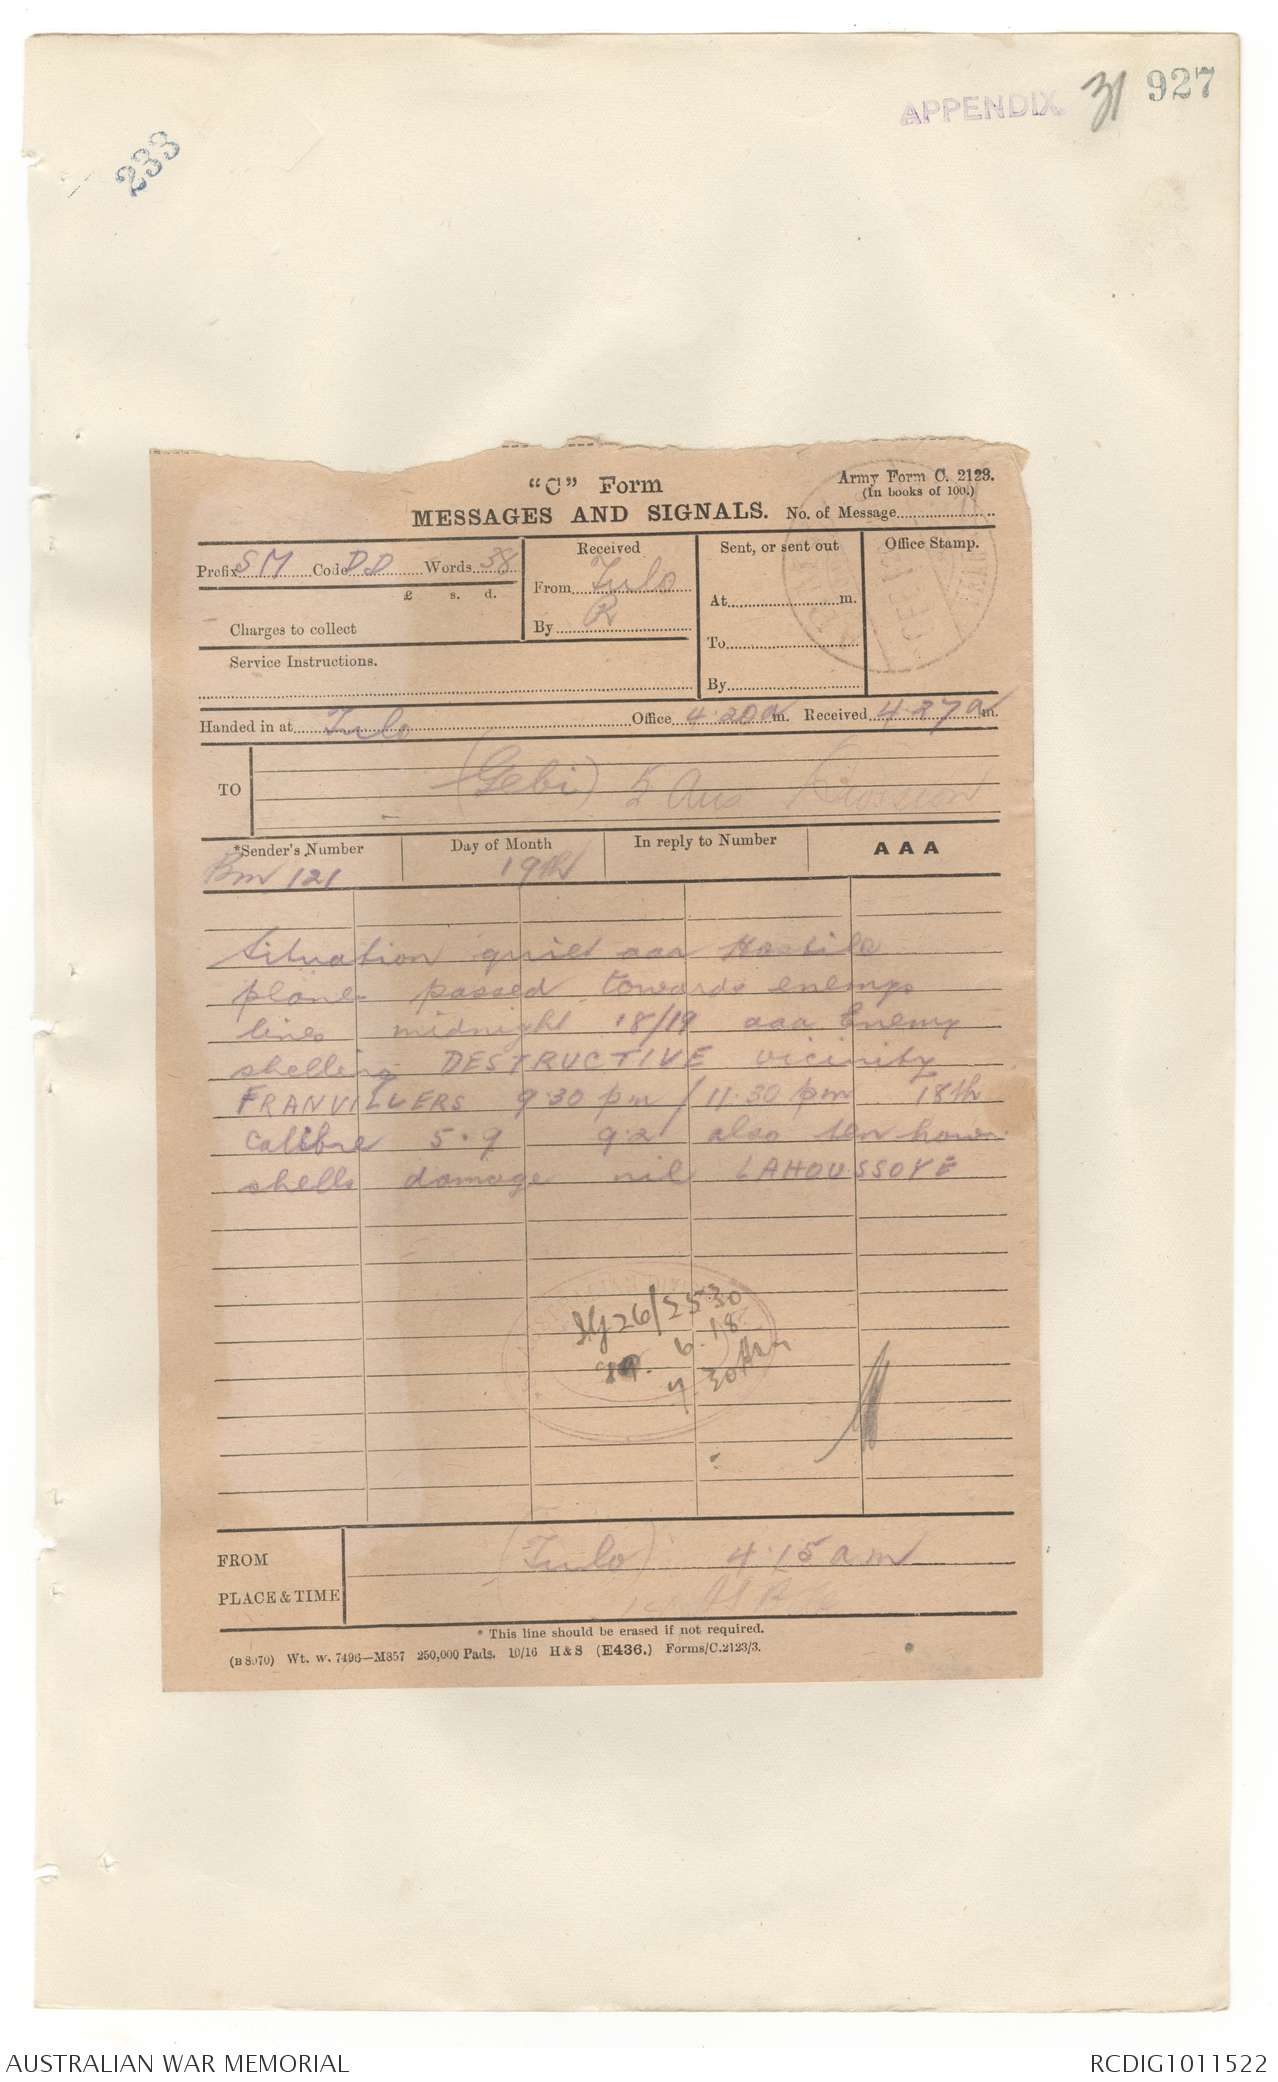 APPENDIX. 31 927
233
"C" Form
Army Form C. 2123.
(In books of 100.)
MESSAGES AND SIGNALS. No. of Message
Prefix SM Code DD Words 38
£ s. d.
Charges to collect
Service Instructions.
Received
From Tulo
By R
Sent, or sent out
At m.
To
By
Office Stamp.
Handed in at Tulo Office 4.20 a m. Received 4.27 a m.
TO (Gebi) 5 Aus Division
*Sender's Number Day of Month In reply to Number AAA
Bm 121 19th
Situation quiet aaa Hostile
plane passed towards enemys
lines midnight 18/19 aaa Enemy
shelling DESTRUCTIVE vicinity
FRANVILLERS 9.30 pm / 11.30 pm 18th
Calibre 5.9 9.2 also ten how
shells damage nil LAHOUSSOYE
Ig 26/2530
19. 6.18
7.30 Am
FROM (Tulo) 4.15 am
PLACE & TIME
* This line should be erased if not required.
(B 8070) Wt. w. 7496—M857 250,000 Pads. 10/16 H & S (E436.) Forms/C.2123/3.
AUSTRALIAN WAR MEMORIAL RCDIG1011522